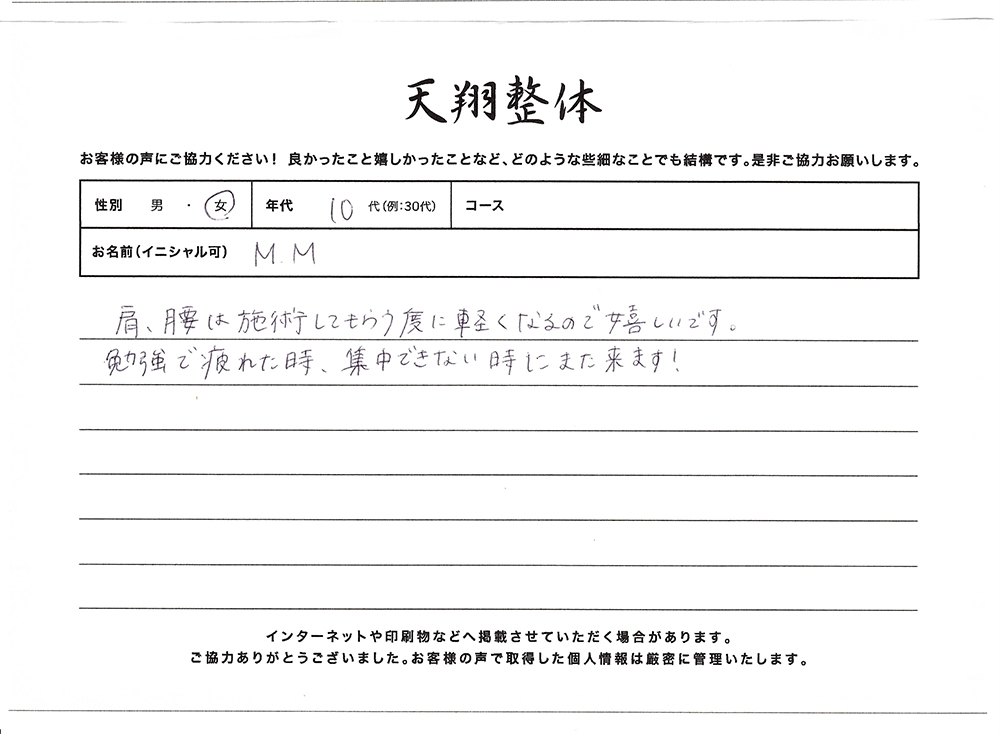 天翔整体
お客様の声にご協力ください！ 良かったこと嬉しかったことなど、どのような些細なことでも結構です。是非ご協力お願いします。
性別 男 ・ 女 年代 10 代(例:30代) コース
お名前(イニシャル可) M.M
肩、腰は施術してもらう度に軽くなるので嬉しいです。
勉強で疲れた時、集中できない時にまた来ます!
インターネットや印刷物などへ掲載させていただく場合があります。
ご協力ありがとうございました。お客様の声で取得した個人情報は厳密に管理いたします。